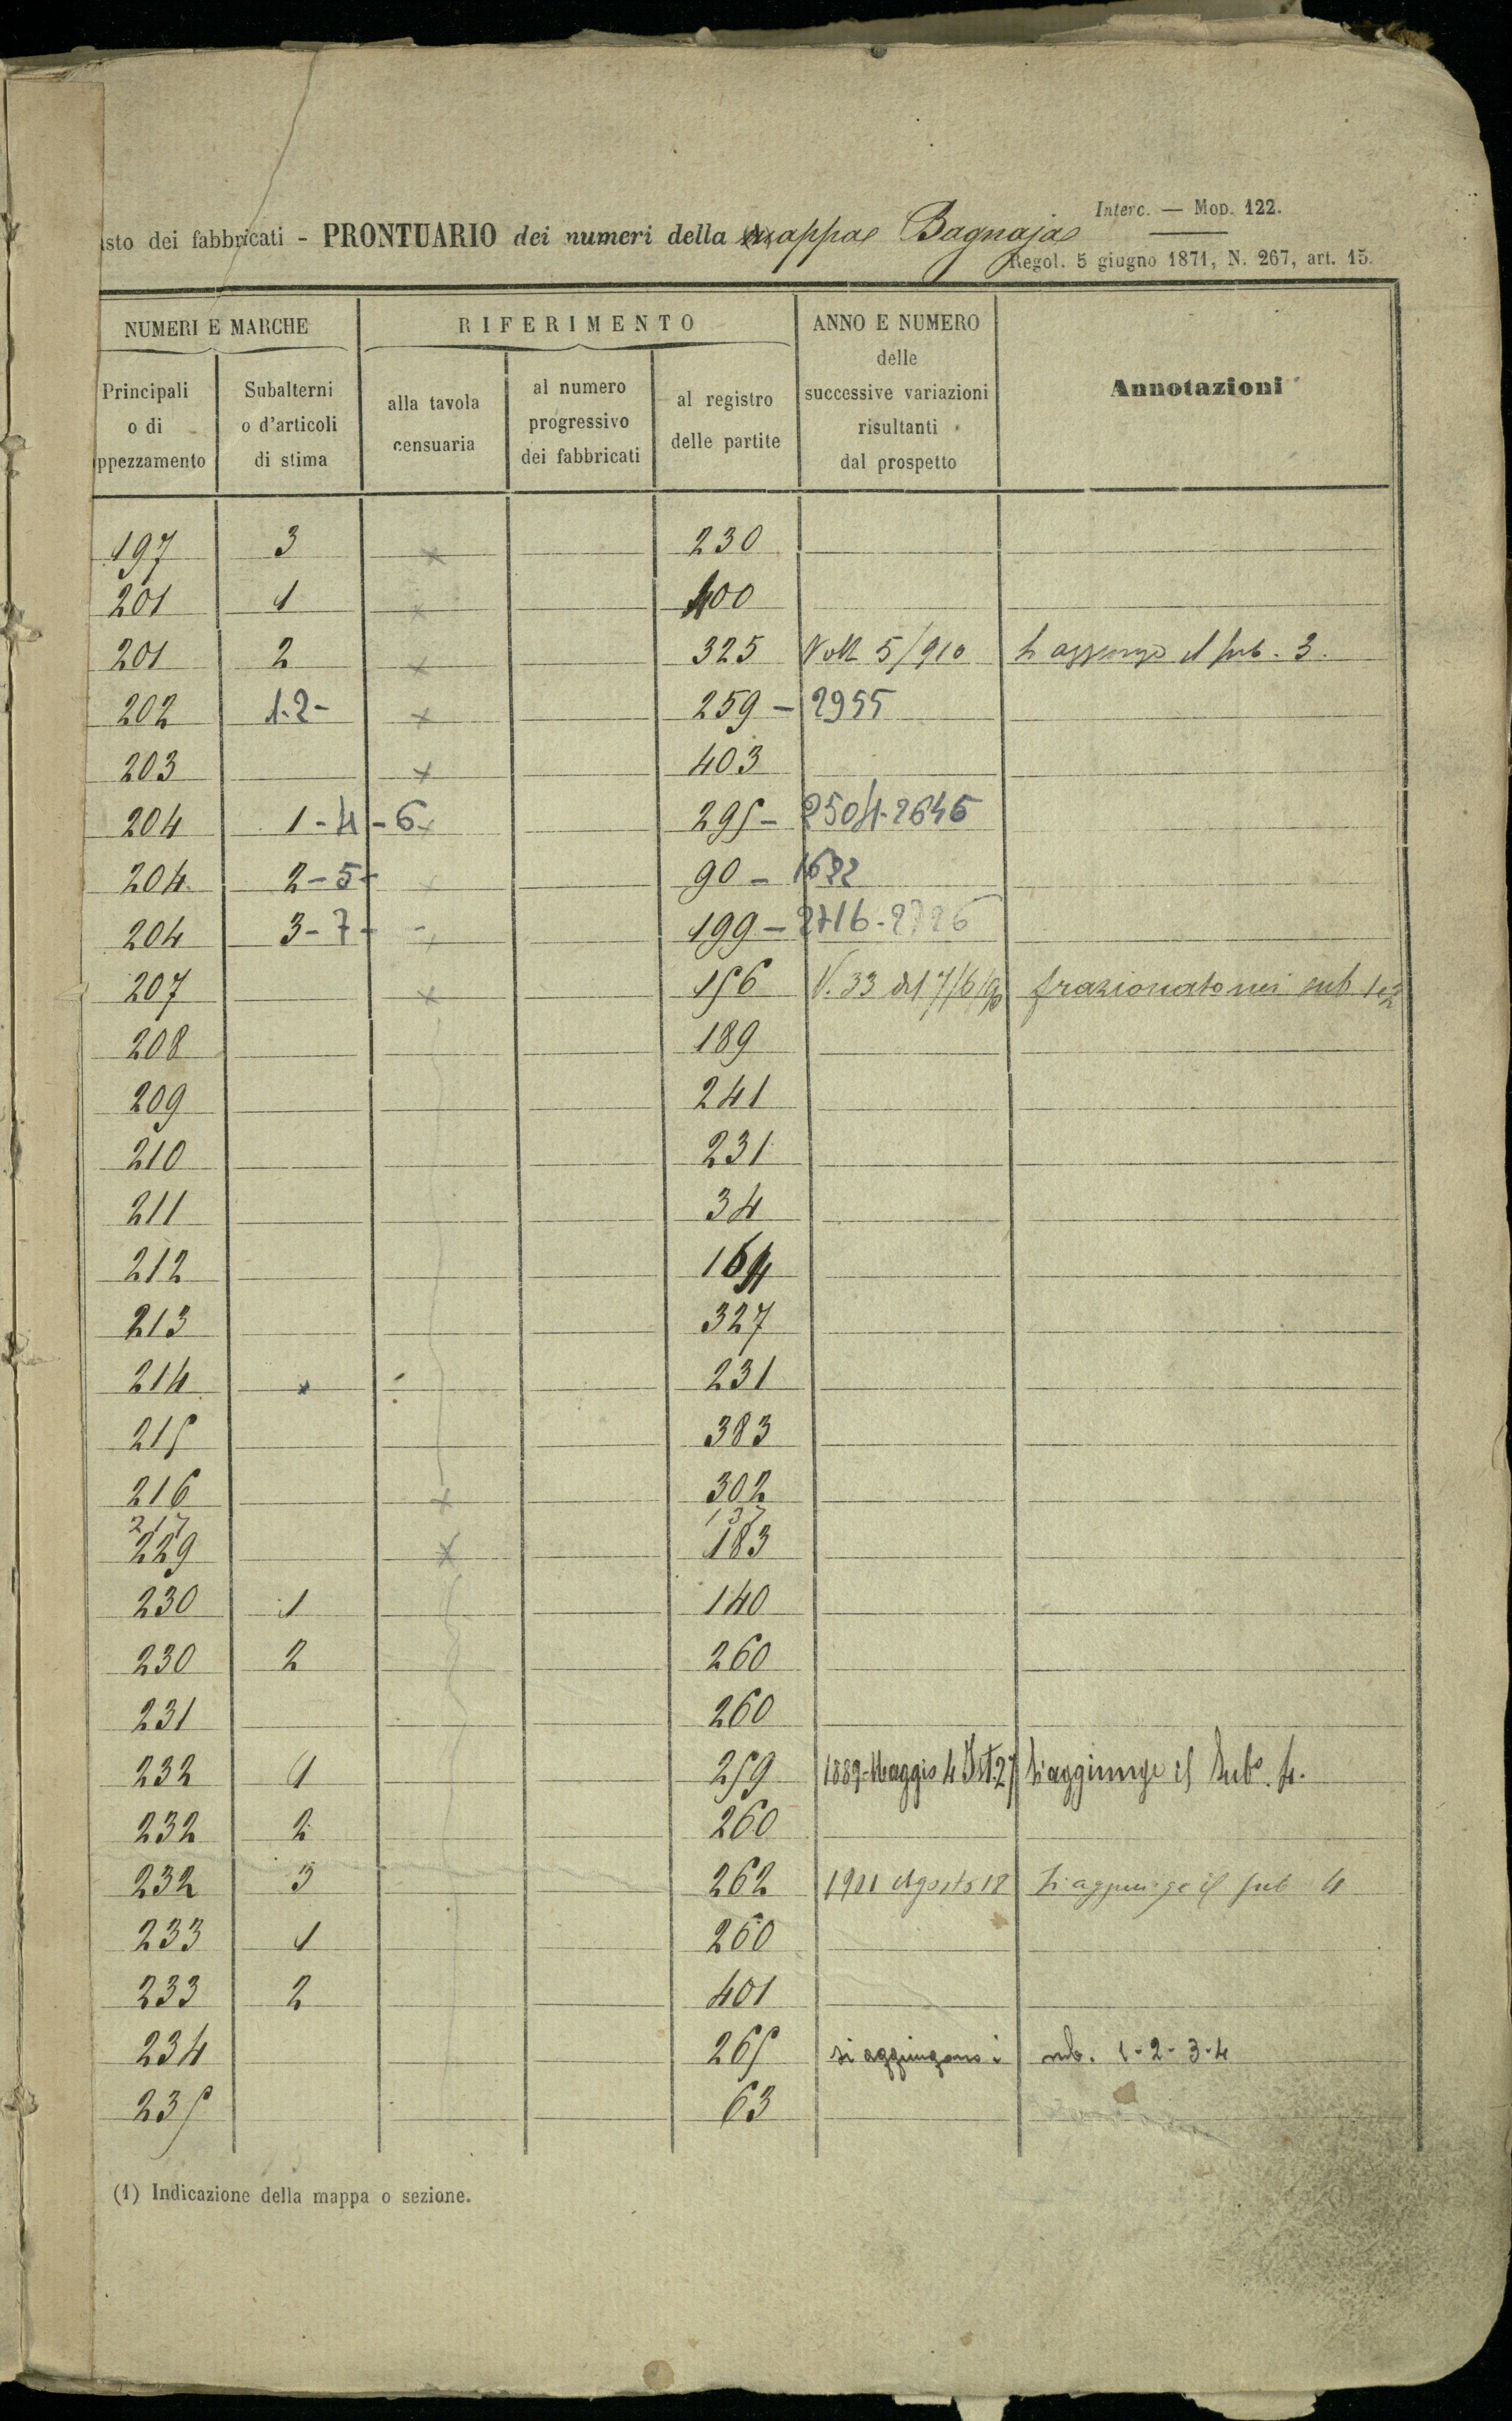 Interc. — Mod. 122.
sto dei fabbricati - PRONTUARIO dei numeri della mappa Bagnaja
Regol. 5 giugno 1871, N. 267, art. 15.
NUMERI E MARCHE
RIFERIMENTO
ANNO E NUMERO delle successive variazioni risultanti dal prospetto
Annotazioni
Principali o di ppezzamento
Subalterni o d'articoli di stima
alla tavola censuaria
al numero progressivo dei fabbricati
al registro delle partite
197 3 × 230
201 1 × 400
201 2 × 325 5/910 il sub. 3.
202 1-2- × 259 - 2955
203 × 403
204 1-4-6- × 295 - 2504-2645
204 2-5- × 90 - 1622
204 3-7- 199 - 2716-2726
207 × 156 V. 33 del frazionato nei sub 1 e 2
208 189
209 241
210 231
211 34
212 164
213 327
214 × 231
215 383
216 × 302
217 137
229 × 183
230 1 140
230 2 260
231 260
232 1 259 1889-Maggio 4 Ist. 27 Si aggiunge il Sub. 4.
232 2 260
232 3 262 Agosto 18 Si aggiunge il sub 4
233 1 260
233 2 401
234 265 si aggiungono i sub. 1-2-3-4
235 63
(1) Indicazione della mappa o sezione.